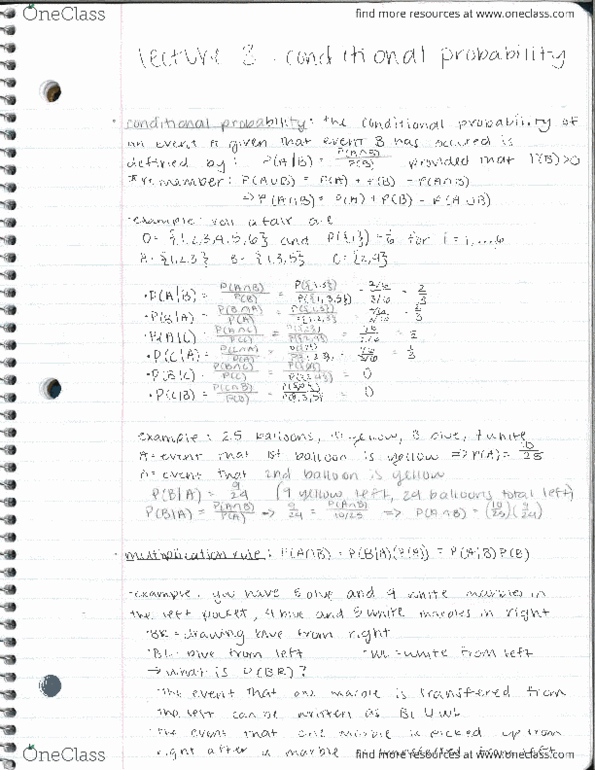 OneClass
find more resources at www.oneclass.com
lecture 3 - conditional probability
conditional probability: the conditional probability of
an event A given that event B has occured is
defined by: P(A|B) = P(A∩B)/P(B) provided that P(B)>0
*remember: P(A∪B) = P(A) + P(B) - P(A∩B)
=> P(A∩B) = P(A) + P(B) - P(A∪B)
example: roll a fair die
= {1,2,3,4,5,6} and P({i}) = 1/6 for i = 1,...,6
A = {1,2,3} B = {1,3,5} C = {2,4}
• P(A|B) = P(A∩B)/P(B) = P({1,3})/P({1,3,5}) = 2/6 / 3/6 = 2/3
• P(B|A) = P(B∩A)/P(A) =
• P(A|C) = P(A∩C)/P(C) =
• P(C|A) = P(C∩A)/P(A) = = 1/3
• P(B|C) = P(B∩C)/P(C) = = 0
• P(C|B) = P(C∩B)/P(B) = = 0
example: 25 balloons, yellow, 8 blue, 7 white
A = event that 1st balloon is yellow => P(A) = 10/25
B = event that 2nd balloon is yellow
P(B|A) = 9/24 (9 yellow left, 24 balloons total left)
P(B|A) = P(A∩B)/P(A) => 9/24 = P(A∩B)/10/25 => P(A∩B) = (10/25)(9/24)
multiplication rule: P(A∩B) = P(B|A)(P(A)) = P(A|B)P(B)
example: you have 5 blue and 4 white marbles in
the left pocket, 4 blue and 5 white marbles in right
BR = drawing blue from right
BL = blue from left WL = white from left
→ what is P(BR)?
the event that one marble is transferred from
the left can be written as BL ∪ WL
the event that one marble is picked up from
right after a marble from left
OneClass
find more resources at www.oneclass.com